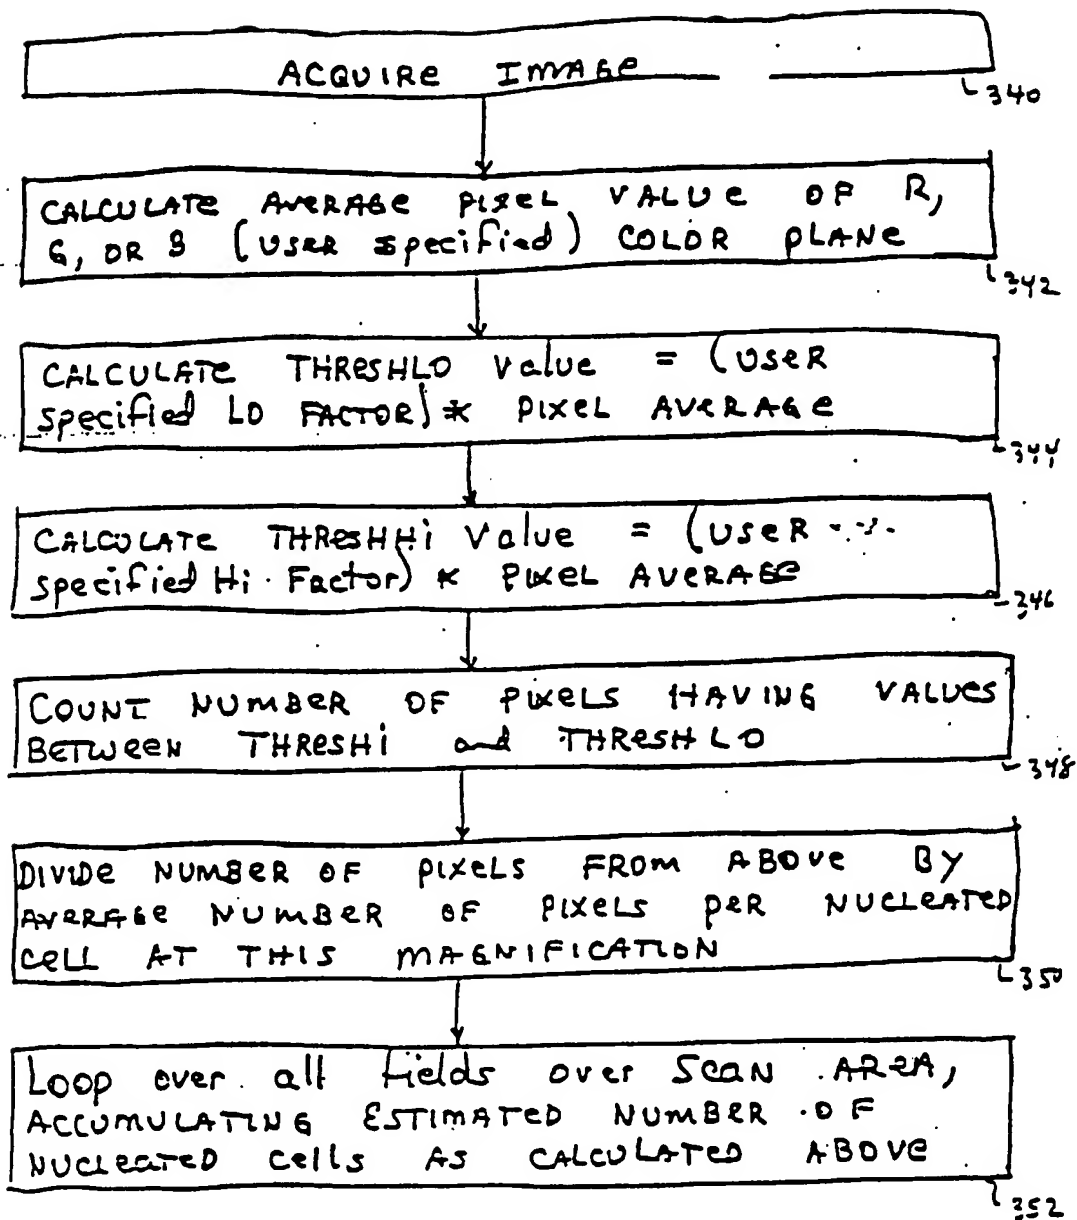 ACQUIRE IMAGE
340
CALCULATE AVERAGE PIXEL VALUE OF R,
G, OR B (USER specified) COLOR PLANE
342
CALCULATE THRESHLO Value = (USER
specified LO FACTOR) * PIXEL AVERAGE
344
CALCULATE THRESHHi Value = (USER
specified Hi Factor) * PIXEL AVERAGE
346
COUNT NUMBER OF PIXELS HAVING VALUES
BETWEEN THRESHi and THRESHLO
348
DIVIDE NUMBER OF PIXELS FROM ABOVE BY
AVERAGE NUMBER OF PIXELS PER NUCLEATED
CELL AT THIS MAGNIFICATION
350
Loop over all fields over Scan AREA,
ACCUMULATING ESTIMATED NUMBER OF
NUCLEATED Cells AS CALCULATED ABOVE
352